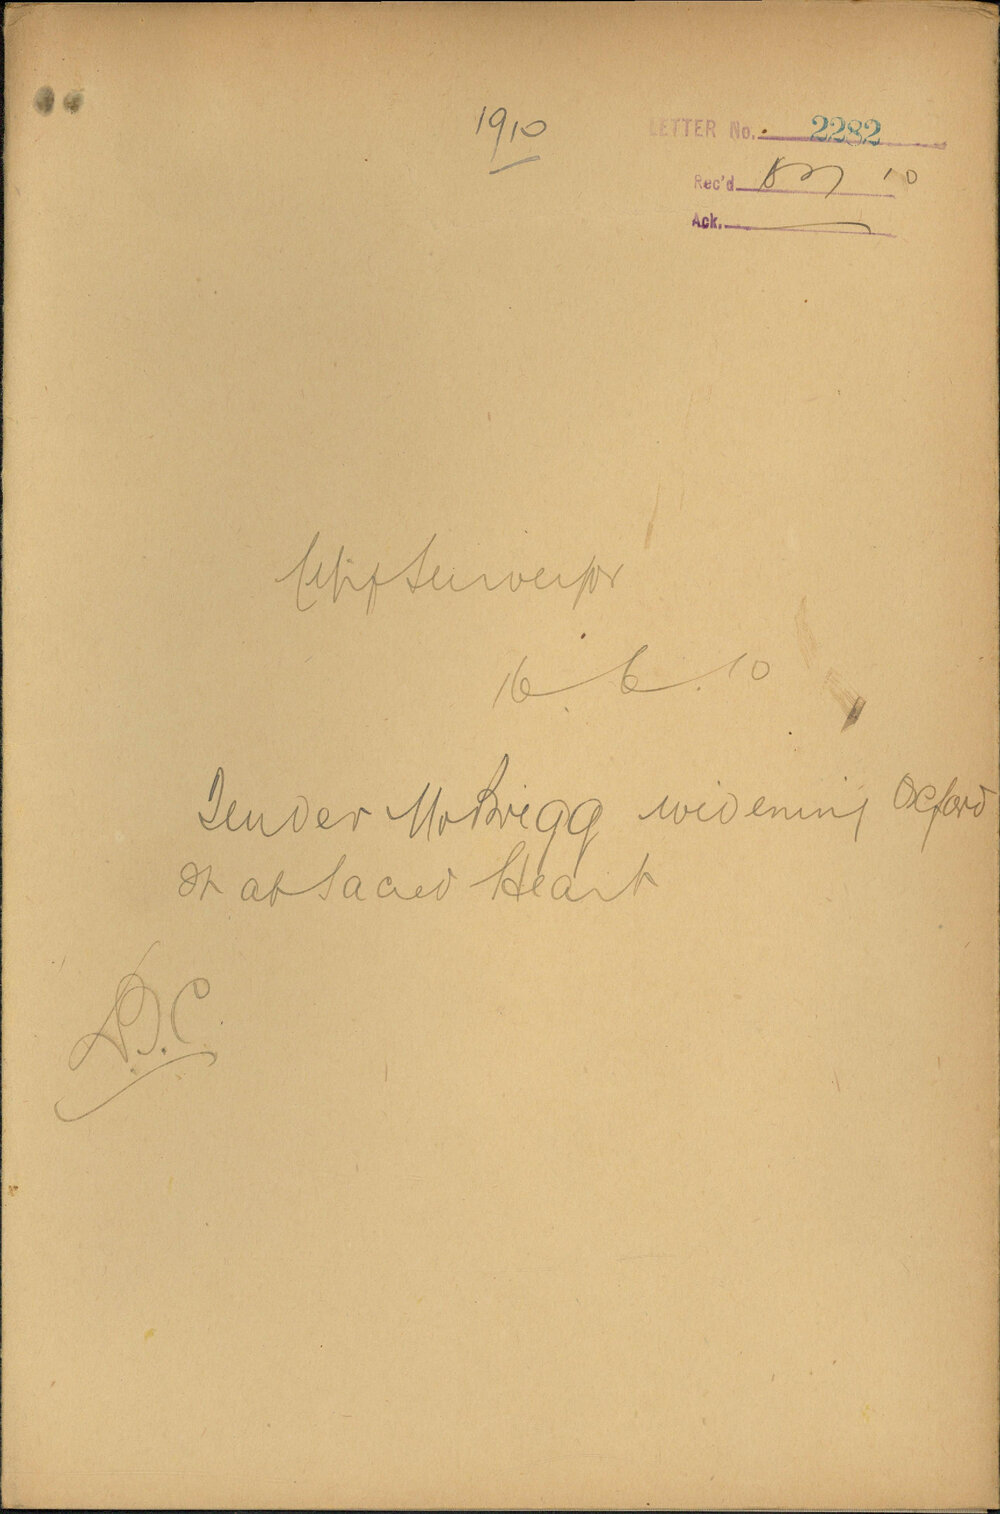 1910
LETTER No. 2282
Rec'd 10
Ack.
City Surveyor
16.6.10
Tender Mr Brigg widening Oxford
St at Sacred Heart
D.C.